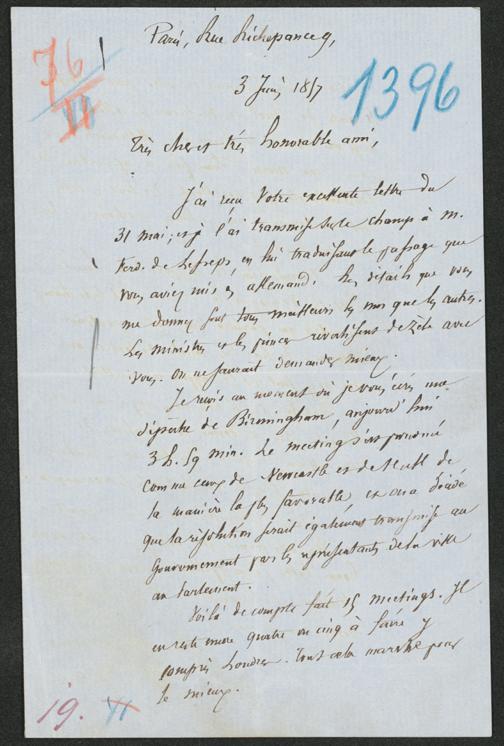 Paris, Rue Richepance 9,
3 Juin 1857
1396
76
VI
Très cher et très honorable ami,
J'ai reçu Votre excellente lettre du
31 mai; et je l'ai transmise sur le champ à M.
Ferd. de Lesseps, en lui traduisant le passage que
vous aviez mis en allemand. Les détails que vous
me donnez sont tous meilleurs les uns que les autres.
Les ministres et les princes rivalisent de zèle avec
vous. On ne saurait demander mieux.
Je reçois au moment où je vous écris une
dépêche de Birmingham, aujourd'hui
3 h. 59 min. Le meeting s'est prononcé
comme ceux de Newcastle et de Hull de
la manière la plus favorable, et on a décidé
que la résolution serait également transmise au
Gouvernement par les représentants de la ville
au Parlement.
Voilà de compte fait 15 meetings. Il
en reste encore quatre ou cinq à faire y
compris Londres. Tout cela marche pour
le mieux.
19. VI